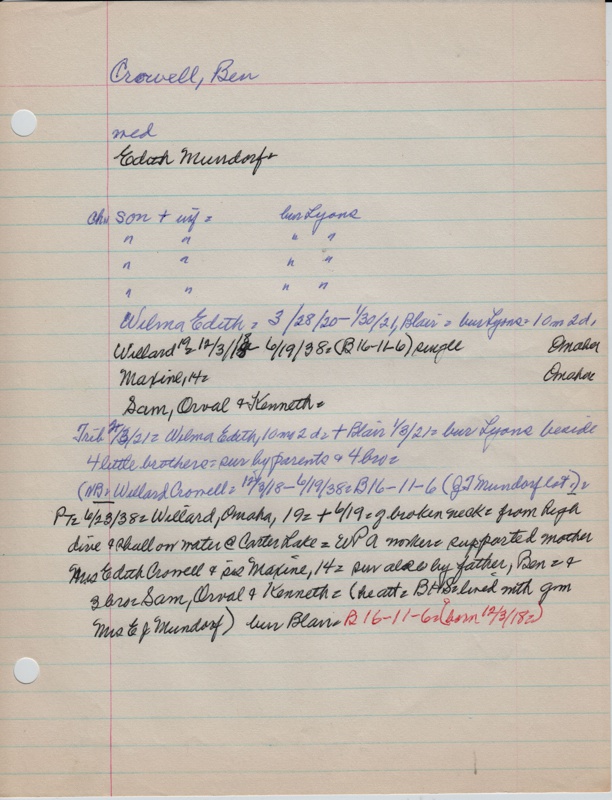 Crowell, Ben
med
Edith Mundorf=
ch= son + inf = bur Lyons
" " " "
" " " "
" " " "
Wilma Edith = 3/28/20-1/30/21, Blair = bur Lyons = 10m 2d,
Willard 19= 12/3/18- 6/19/38= (B 16-11-6) single Omaha
Maxine, 14= Omaha
Sam, Orval & Kenneth=
Trib 2/3/21= Wilma Edith, 10m 2d= + Blair 1/3/21= bur Lyons beside
4 little brothers= sur by parents & 4 bro=
(NB= Willard Crowell = 12/3/18-6/19/38= B16-11-6 (J J Mundorf lot)=
PT= 6/23/38= Willard, Omaha, 19= + 6/19= of broken neck= from high
dive & shallow water @ Carter Lake = WPA worker= supported mother
Mrs Edith Crowell & sis Maxine, 14= sur also by father, Ben= &
3 bro= Sam, Orval & Kenneth= (he att= BHS= lived with gm
Mrs E J Mundorf) bur Blair= B 16-11-6= (born 12/3/18=)